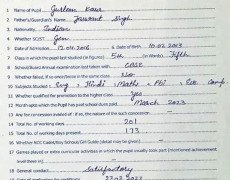 1. Name of Pupil Gurleen Kaur
2. Father's/Guardian's Name Jaswant Singh
3. Nationality Indian
4. Whether SC/ST. Gen
5. Date of Admission 12.04.2016 6. Date of Birth 10.02.2013
7. Class in which the pupil last studied (in figures) 5th (in words) Fifth
8. School/Board Annual examination last taken with CBSE
9. Whether failed, if so once/twice in the same class No
10. Subjects Studied: Eng, Hindi, Maths, Pbi,
11. Whether qualified for promotion to the higher class Yes
12. Month upto which the Pupil has paid school dues March 2023
13. Any fee concession availed of: if so, the nature of such concession.
14. Total No. of working days 201
15. Total No. of working days present 173
16. Whether NCC Cadet/Boy Scout/Girl Guide (detail may be given)
17. Games played or extra curricular activities in which the pupil usually took part (mentioned achievement
level therein)
18. General conduct Satisfactory